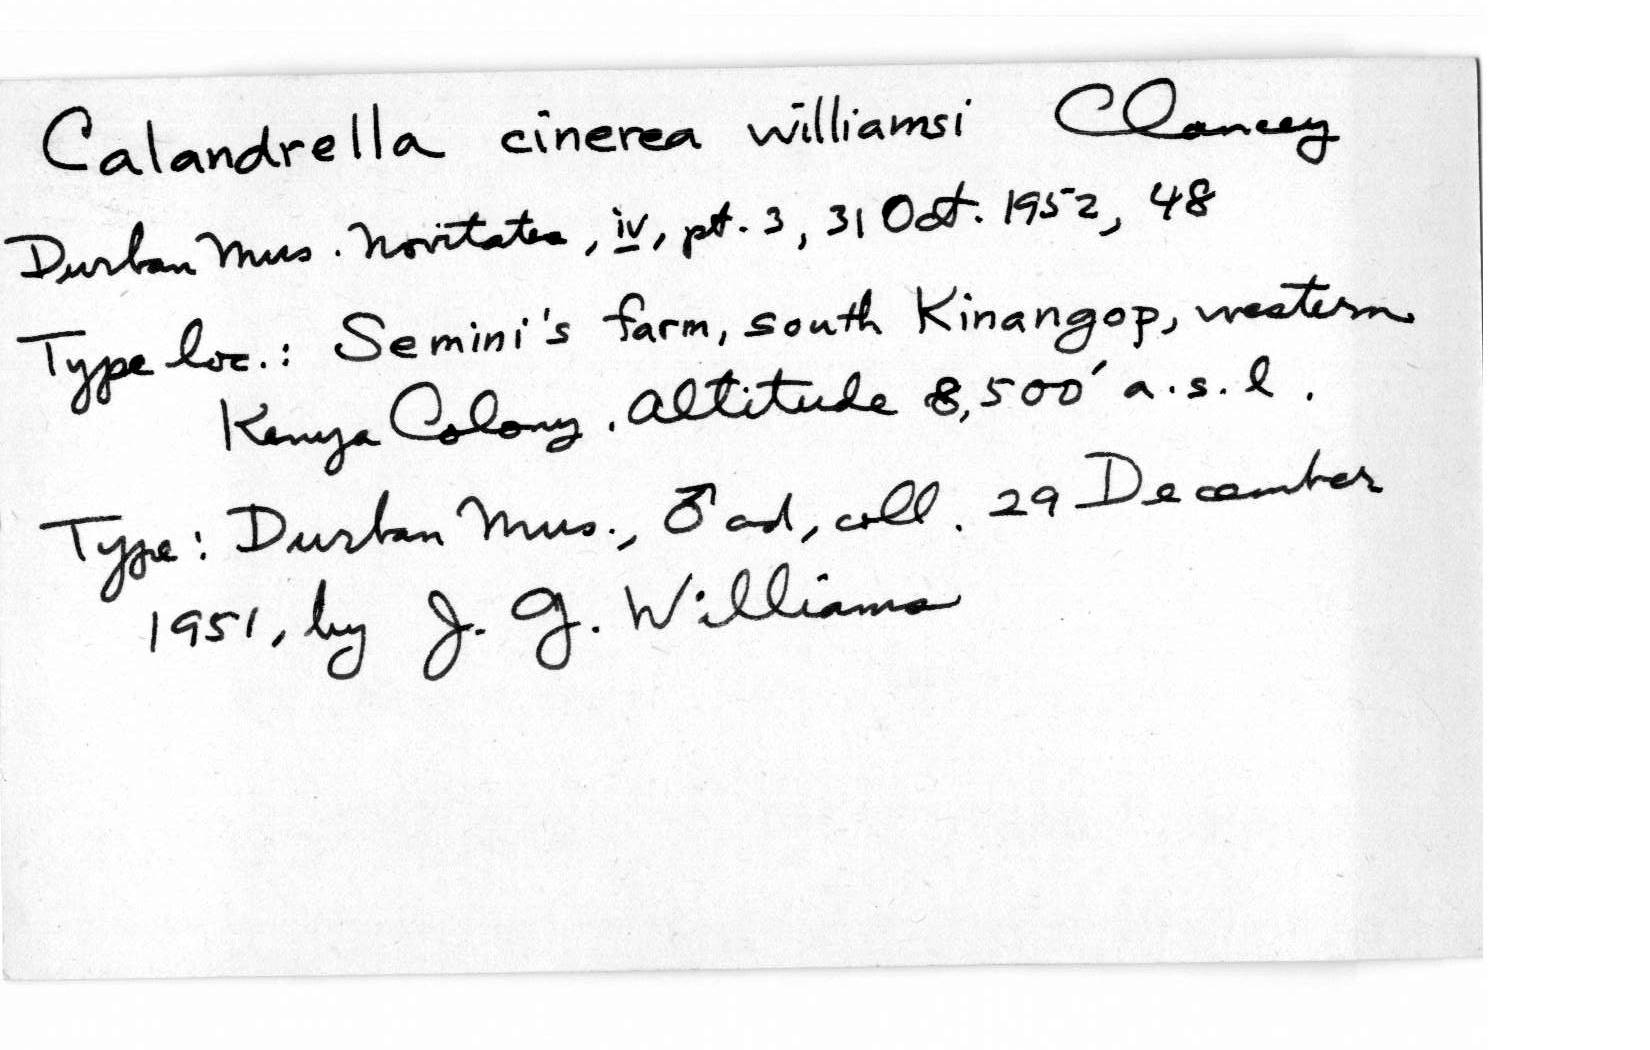 Calandrella cinerea williamsi Clancey
Durban Mus. Novitates, iv, pt. 3, 31 Oct. 1952, 48
Type loc.: Semini's farm, south Kinangop, western
Kenya Colony. Altitude 8,500' a.s.l.
Type: Durban Mus., ♂ ad, coll. 29 December
1951, by J. G. Williams